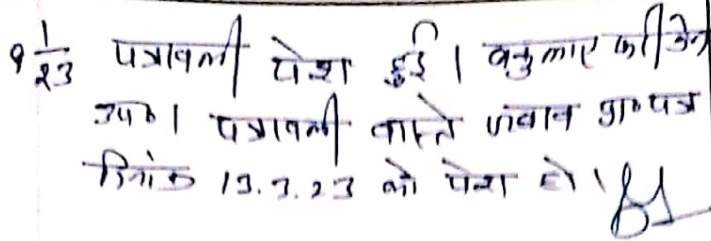 9 1/23 पत्रावली पेश हुई। वकुलाए फरीकेन
उप०। पत्रावली वास्ते जवाब प्रा०पत्र
दिनांक 13.7.23 को पेश हो।